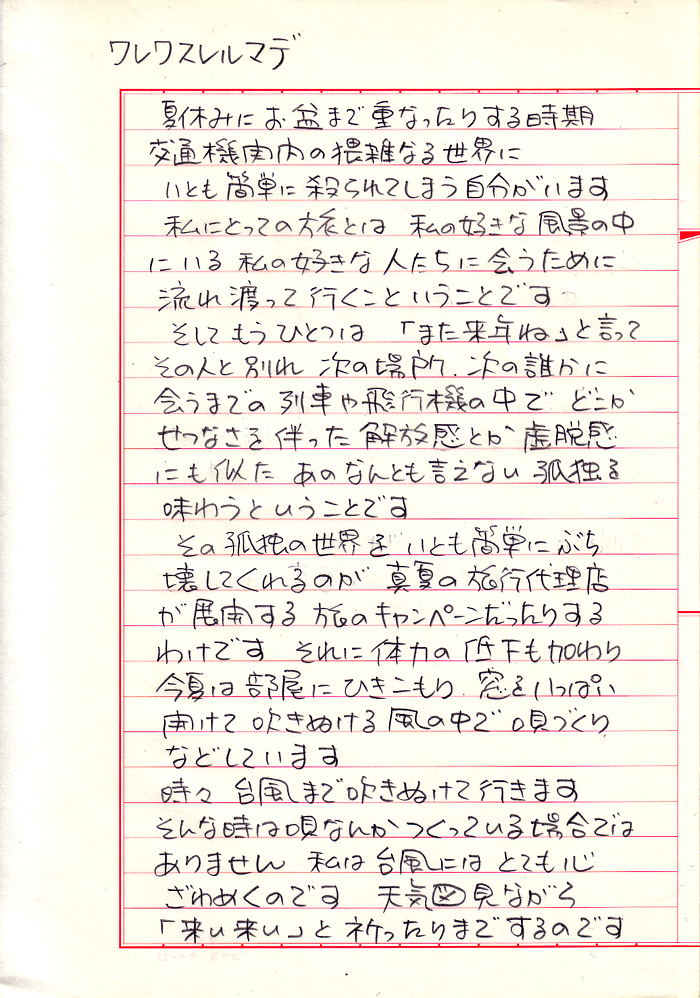 ワレワスレルマデ
夏休みにお盆まで重なったりする時期
交通機関内の猥雑なる世界に
いとも簡単に殺られてしまう自分がいます
私にとっての旅とは 私の好きな風景の中
にいる 私の好きな人たちに会うために
流れ渡って行くこということです
そしてもうひとつは 「また来年ね」と言って
その人と別れ 次の場所、次の誰かに
会うまでの 列車や飛行機の中で どこか
せつなさを伴った 解放感とか 虚脱感
にも似た あのなんとも言えない 孤独を
味わうということです
その孤独の世界を いとも簡単に ぶち
壊してくれるのが 真夏の旅行代理店
が展開する 旅のキャンペーンだったりする
わけです それに体力の低下も加わり
今夏は部屋にひきこもり、窓をいっぱい
開けて 吹きぬける風の中で 唄づくり
などしています
時々 台風まで吹きぬけて行きます
そんな時は唄なんかつくっている場合では
ありません 私は台風にはとても心
ざわめくのです 天気図見ながら
「来い来い」と祈ったりまでするのです